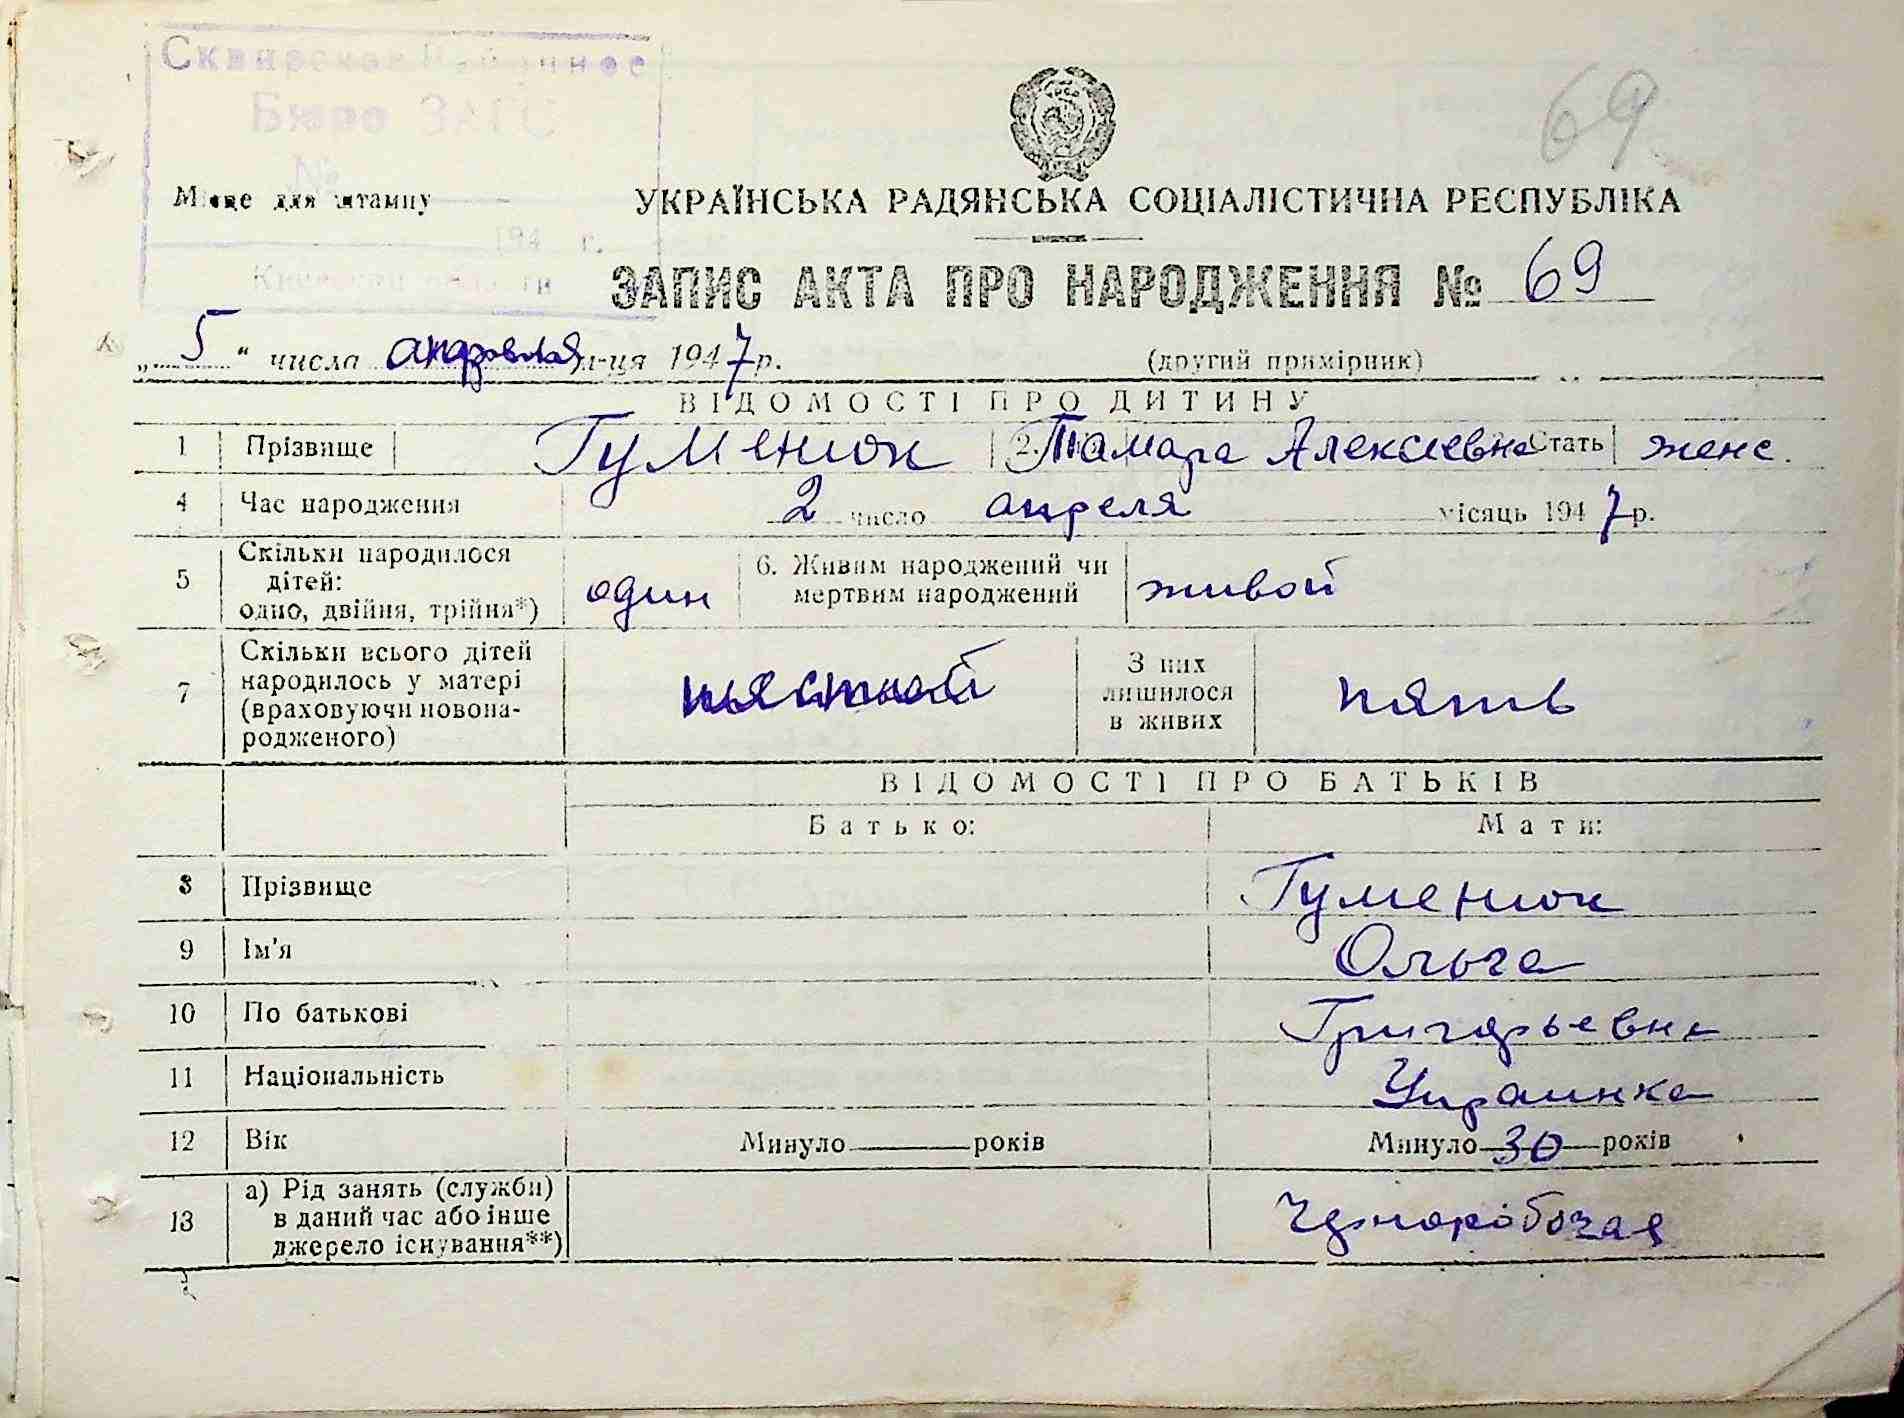 Сквирское Районное
Бюро ЗАГС
№
194 г.
Киевской области
69
Місце для штампу
УКРАЇНСЬКА РАДЯНСЬКА СОЦІАЛІСТИЧНА РЕСПУБЛІКА
ЗАПИС АКТА ПРО НАРОДЖЕННЯ № 69
„5“ числа апреля м-ця 1947 р. (другий примірник)
ВІДОМОСТІ ПРО ДИТИНУ
1 Прізвище Гуменюк 2. Тамара Алексеевна Стать женс.
4 Час народження 2 число апреля місяць 1947 р.
5 Скільки народилося дітей: одно, двійня, трійня*) один 6. Живим народжений чи мертвим народжений живой
7 Скільки всього дітей народилось у матері (враховуючи новонародженого) З них лишилося в живих пять
ВІДОМОСТІ ПРО БАТЬКІВ
Батько: Мати:
8 Прізвище Гуменюк
9 Ім'я Ольга
10 По батькові Григорьевна
11 Національність Украинка
12 Вік Минуло років Минуло 30 років
13 а) Рід занять (служби) в даний час або інше джерело існування**) Чернорабочая